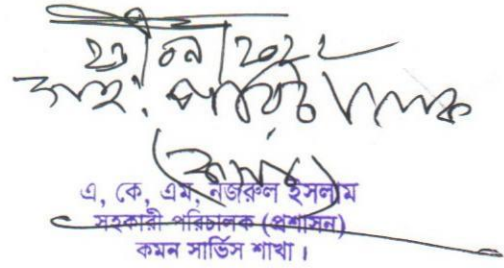 ২১/০৭/২০২২
সহ: পরিচালক
এ, কে, এম, নজরুল ইসলাম
সহকারী পরিচালক (প্রশাসন)
কমন সার্ভিস শাখা।